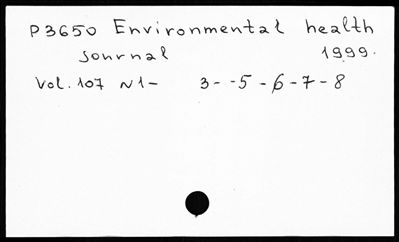 P3650 Environmental health
Journal 1999.
Vol. 107 N1- 3- -5-6-7-8